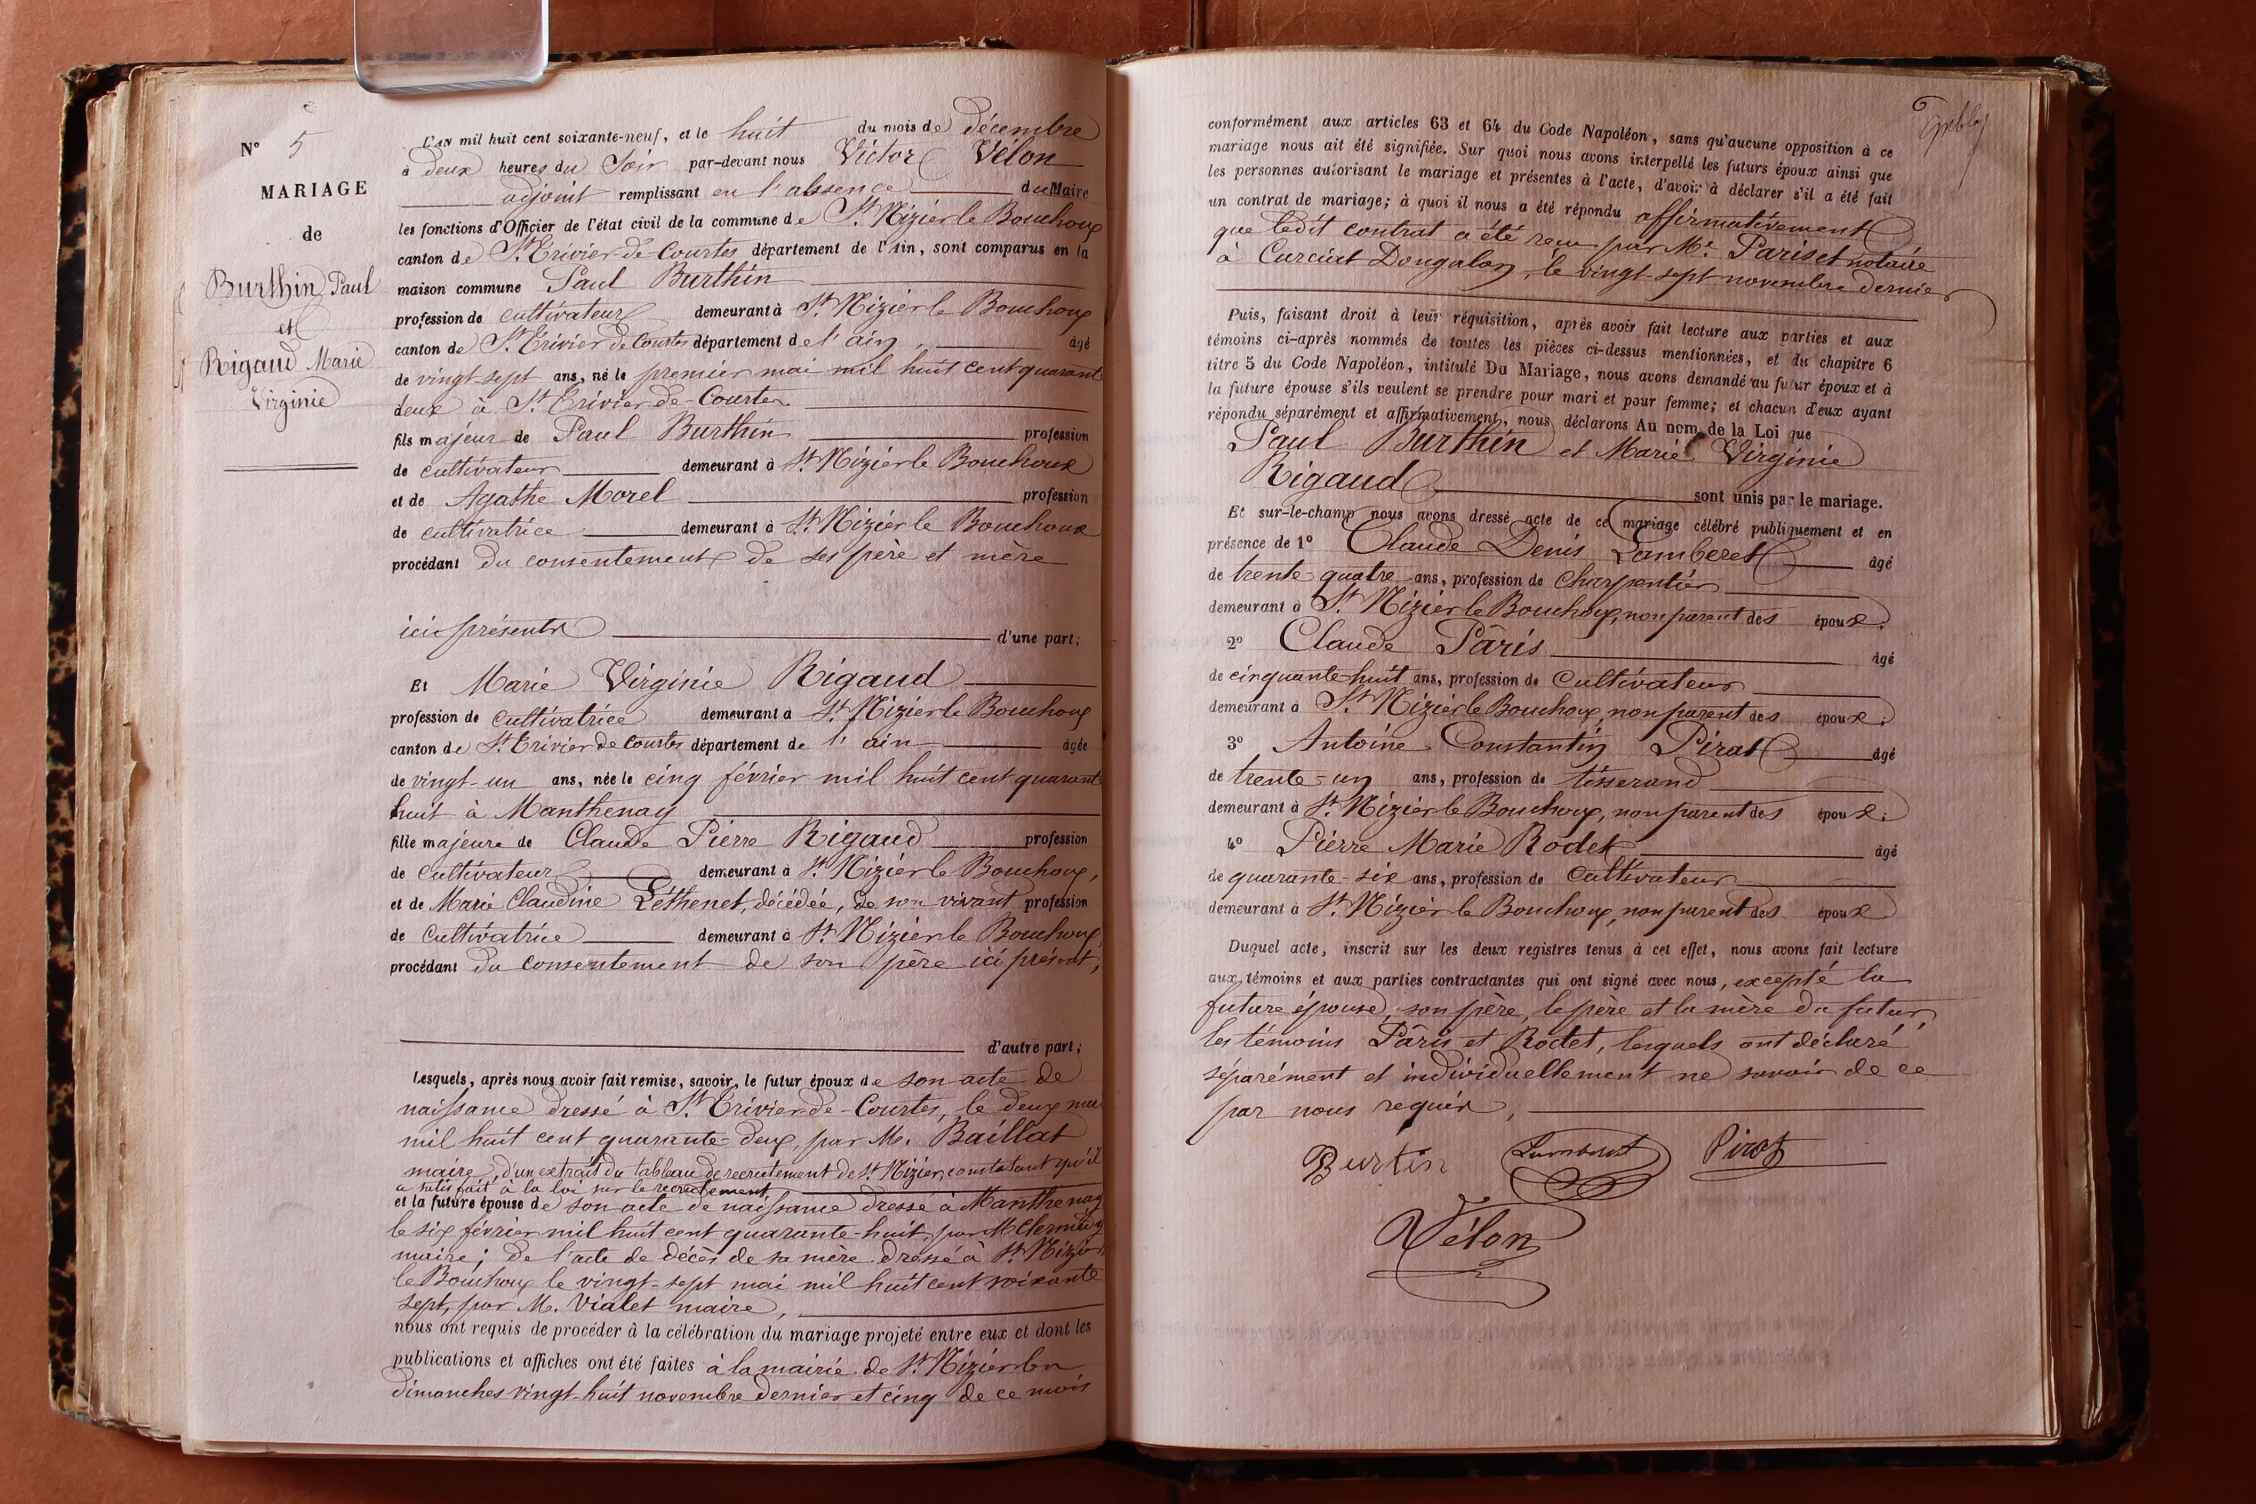 N° 5
MARIAGE
de
Burthin Paul
et
Rigaud Marie
Virginie
L'an mil huit cent soixante-neuf, et le huit du mois de décembre
à deux heures du Soir par-devant nous Victor Vélon
adjoint remplissant en l'absence du Maire
les fonctions d'Officier de l'état civil de la commune de St Nizier le Bouchoux
canton de St Trivier-de-Courtes département de l'Ain, sont comparus en la
maison commune Paul Burthin
profession de cultivateur demeurant à St Nizier le Bouchoux
canton de St Trivier de Courtes département de l'ain, âgé
de vingt-sept ans, né le premier mai mil huit cent quarante
deux à St Trivier-de-Courtes
fils majeur de Paul Burthin profession
de cultivateur demeurant à St Nizier le Bouchoux
et de Agathe Morel profession
de cultivatrice demeurant à St Nizier le Bouchoux
procédant du consentement de ses père et mère
ici présents d'une part;
Et Marie Virginie Rigaud
profession de cultivatrice demeurant à St Nizier le Bouchoux
canton de St Trivier de Courtes département de l'ain âgée
de vingt-un ans, née le cinq février mil huit cent quarante
huit à Manthenay
fille majeure de Claude Pierre Rigaud profession
de cultivateur demeurant à St Nizier le Bouchoux,
et de Marie Claudine Léthenet, décédée, de son vivant profession
de cultivatrice demeurant à St Nizier le Bouchoux,
procédant du consentement de son père ici présent,
d'autre part;
Lesquels, après nous avoir fait remise, savoir, le futur époux de son acte de
naissance dressé à St Trivier-de-Courtes, le deux mai
mil huit cent quarante-deux, par M. Baillat
maire, d'un extrait du tableau de recrutement de St Nizier, constatant qu'il
a satisfait à la loi sur le recrutement,
et la future épouse de son acte de naissance dressé à Manthenay
le six février mil huit cent quarante-huit, par M.
maire; de l'acte de décès de sa mère dressé à St Nizier
le Bouchoux le vingt-sept mai mil huit cent soixante
sept, par M. Vialet maire,
nous ont requis de procéder à la célébration du mariage projeté entre eux et dont les
publications et affiches ont été faites à la mairie de St Nizier les
dimanches vingt-huit novembre dernier et cinq de ce mois
conformément aux articles 63 et 64 du Code Napoléon, sans qu'aucune opposition à ce
mariage nous ait été signifiée. Sur quoi nous avons interpellé les futurs époux ainsi que
les personnes autorisant le mariage et présentes à l'acte, d'avoir à déclarer s'il a été fait
un contrat de mariage; à quoi il nous a été répondu affirmativement
que ledit contrat a été reçu par Me Pariset notaire
à Curciat Dongalon, le vingt-sept novembre dernier
Puis, faisant droit à leur réquisition, après avoir fait lecture aux parties et aux
témoins ci-après nommés de toutes les pièces ci-dessus mentionnées, et du chapitre 6
titre 5 du Code Napoléon, intitulé Du Mariage, nous avons demandé au futur époux et à
la future épouse s'ils veulent se prendre pour mari et pour femme; et chacun d'eux ayant
répondu séparément et affirmativement, nous déclarons Au nom de la Loi que
Paul Burthin et Marie Virginie
Rigaud sont unis par le mariage.
Et sur-le-champ nous avons dressé acte de ce mariage célébré publiquement et en
présence de 1° Claude Denis Lamberet âgé
de trente quatre ans, profession de Charpentier
demeurant à St Nizier le Bouchoux, non parent des époux.
2° Claude Pâris âgé
de cinquante-huit ans, profession de Cultivateur
demeurant à St Nizier le Bouchoux, non parent des époux;
3° Antoine Constantin Pirat âgé
de trente-un ans, profession de tisserand
demeurant à St Nizier le Bouchoux, non parent des époux;
4° Pierre Marie Rodet âgé
de quarante-six ans, profession de Cultivateur
demeurant à St Nizier le Bouchoux, non parent des époux
Duquel acte, inscrit sur les deux registres tenus à cet effet, nous avons fait lecture
aux témoins et aux parties contractantes qui ont signé avec nous, excepté la
future épouse, son père, le père et la mère du futur,
les témoins Pâris et Rodet, lesquels ont déclaré
séparément et individuellement ne savoir de ce
par nous requis,
Burtin Lamberet Pirat
Vélon